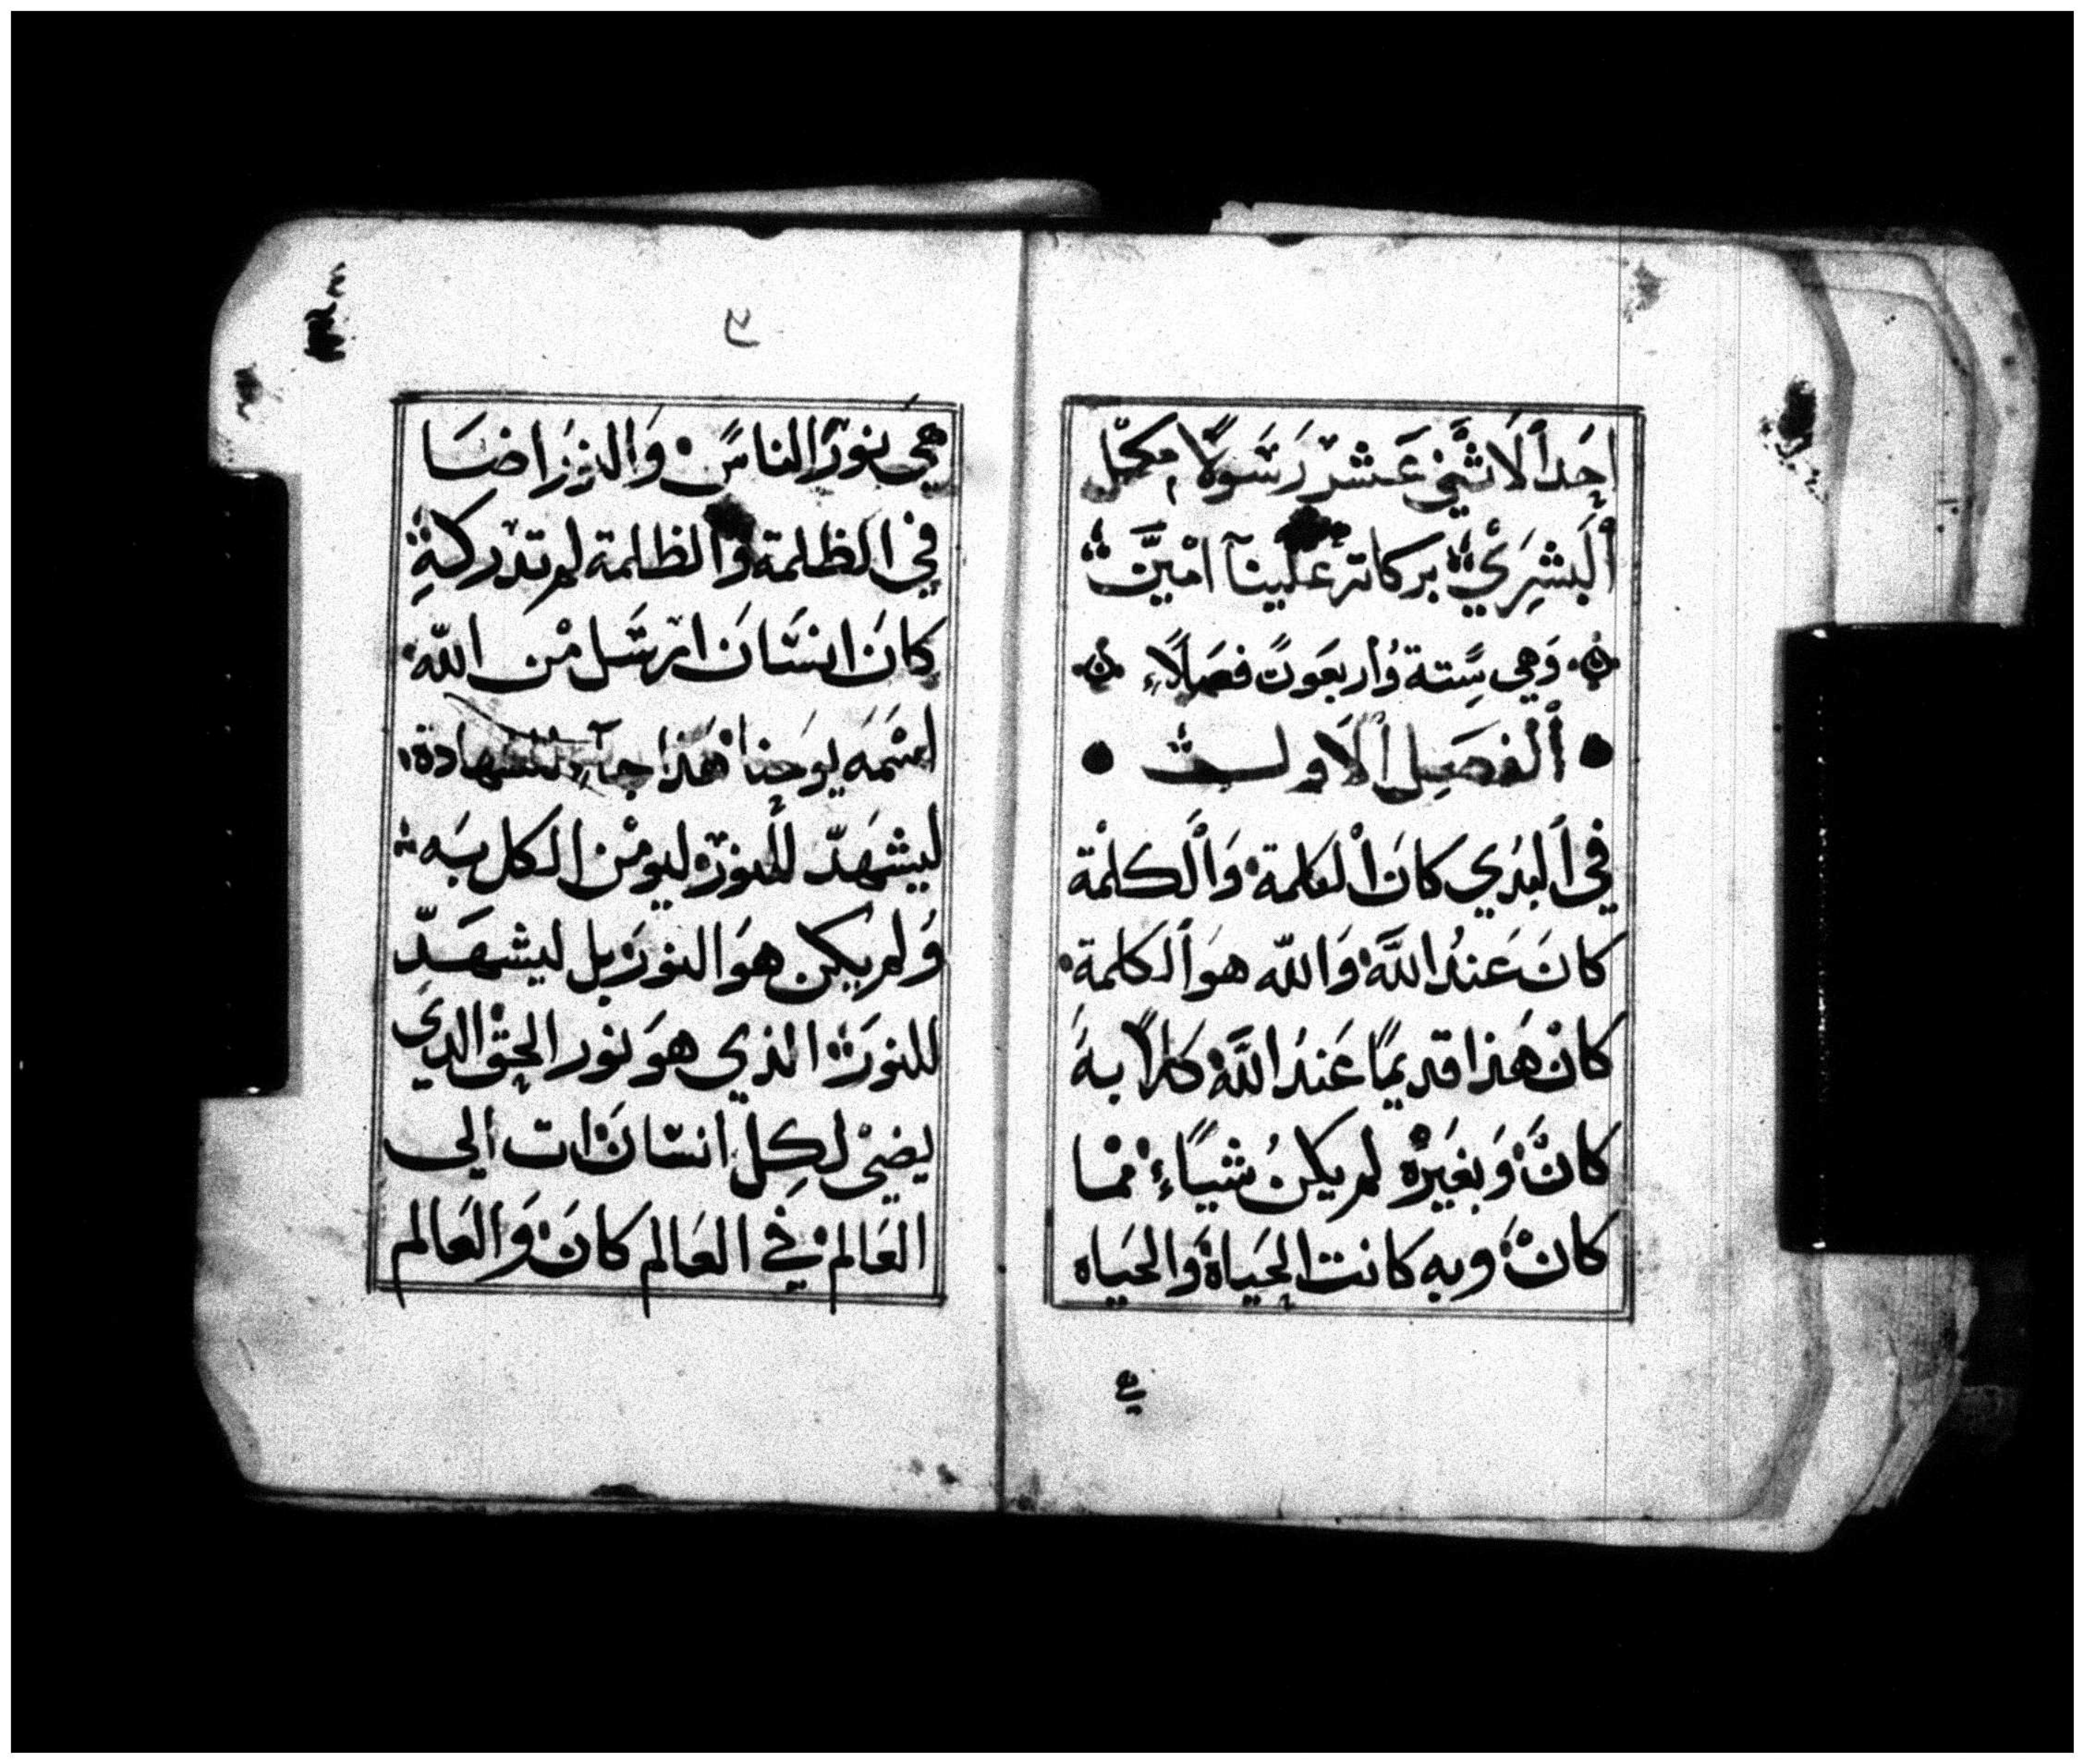 احد الاثني عشر رسولا مكمل
البشري بركاته علينا امين
وهي ستة واربعون فصلا
الفصل الاول
في البدي كان الكلمة والكلمة
كان عند الله والله هو الكلمة
كان هذا قديما عند الله كلا به
كان وبغيره لم يكن شياء مما
كان وبه كانت الحياة والحياه
هي نور الناس والنور اضا
في الظلمة والظلمة لم تدركه
كان انسان ارسل من الله
اسمه يوحنا هذا جاء للشهادة
ليشهد للنور ليومن الكل به
ولم يكن هو النور بل ليشهد
للنور الذي هو نور الحق الدي
يضي لكل انسان ات الي
العالم في العالم كان والعالم